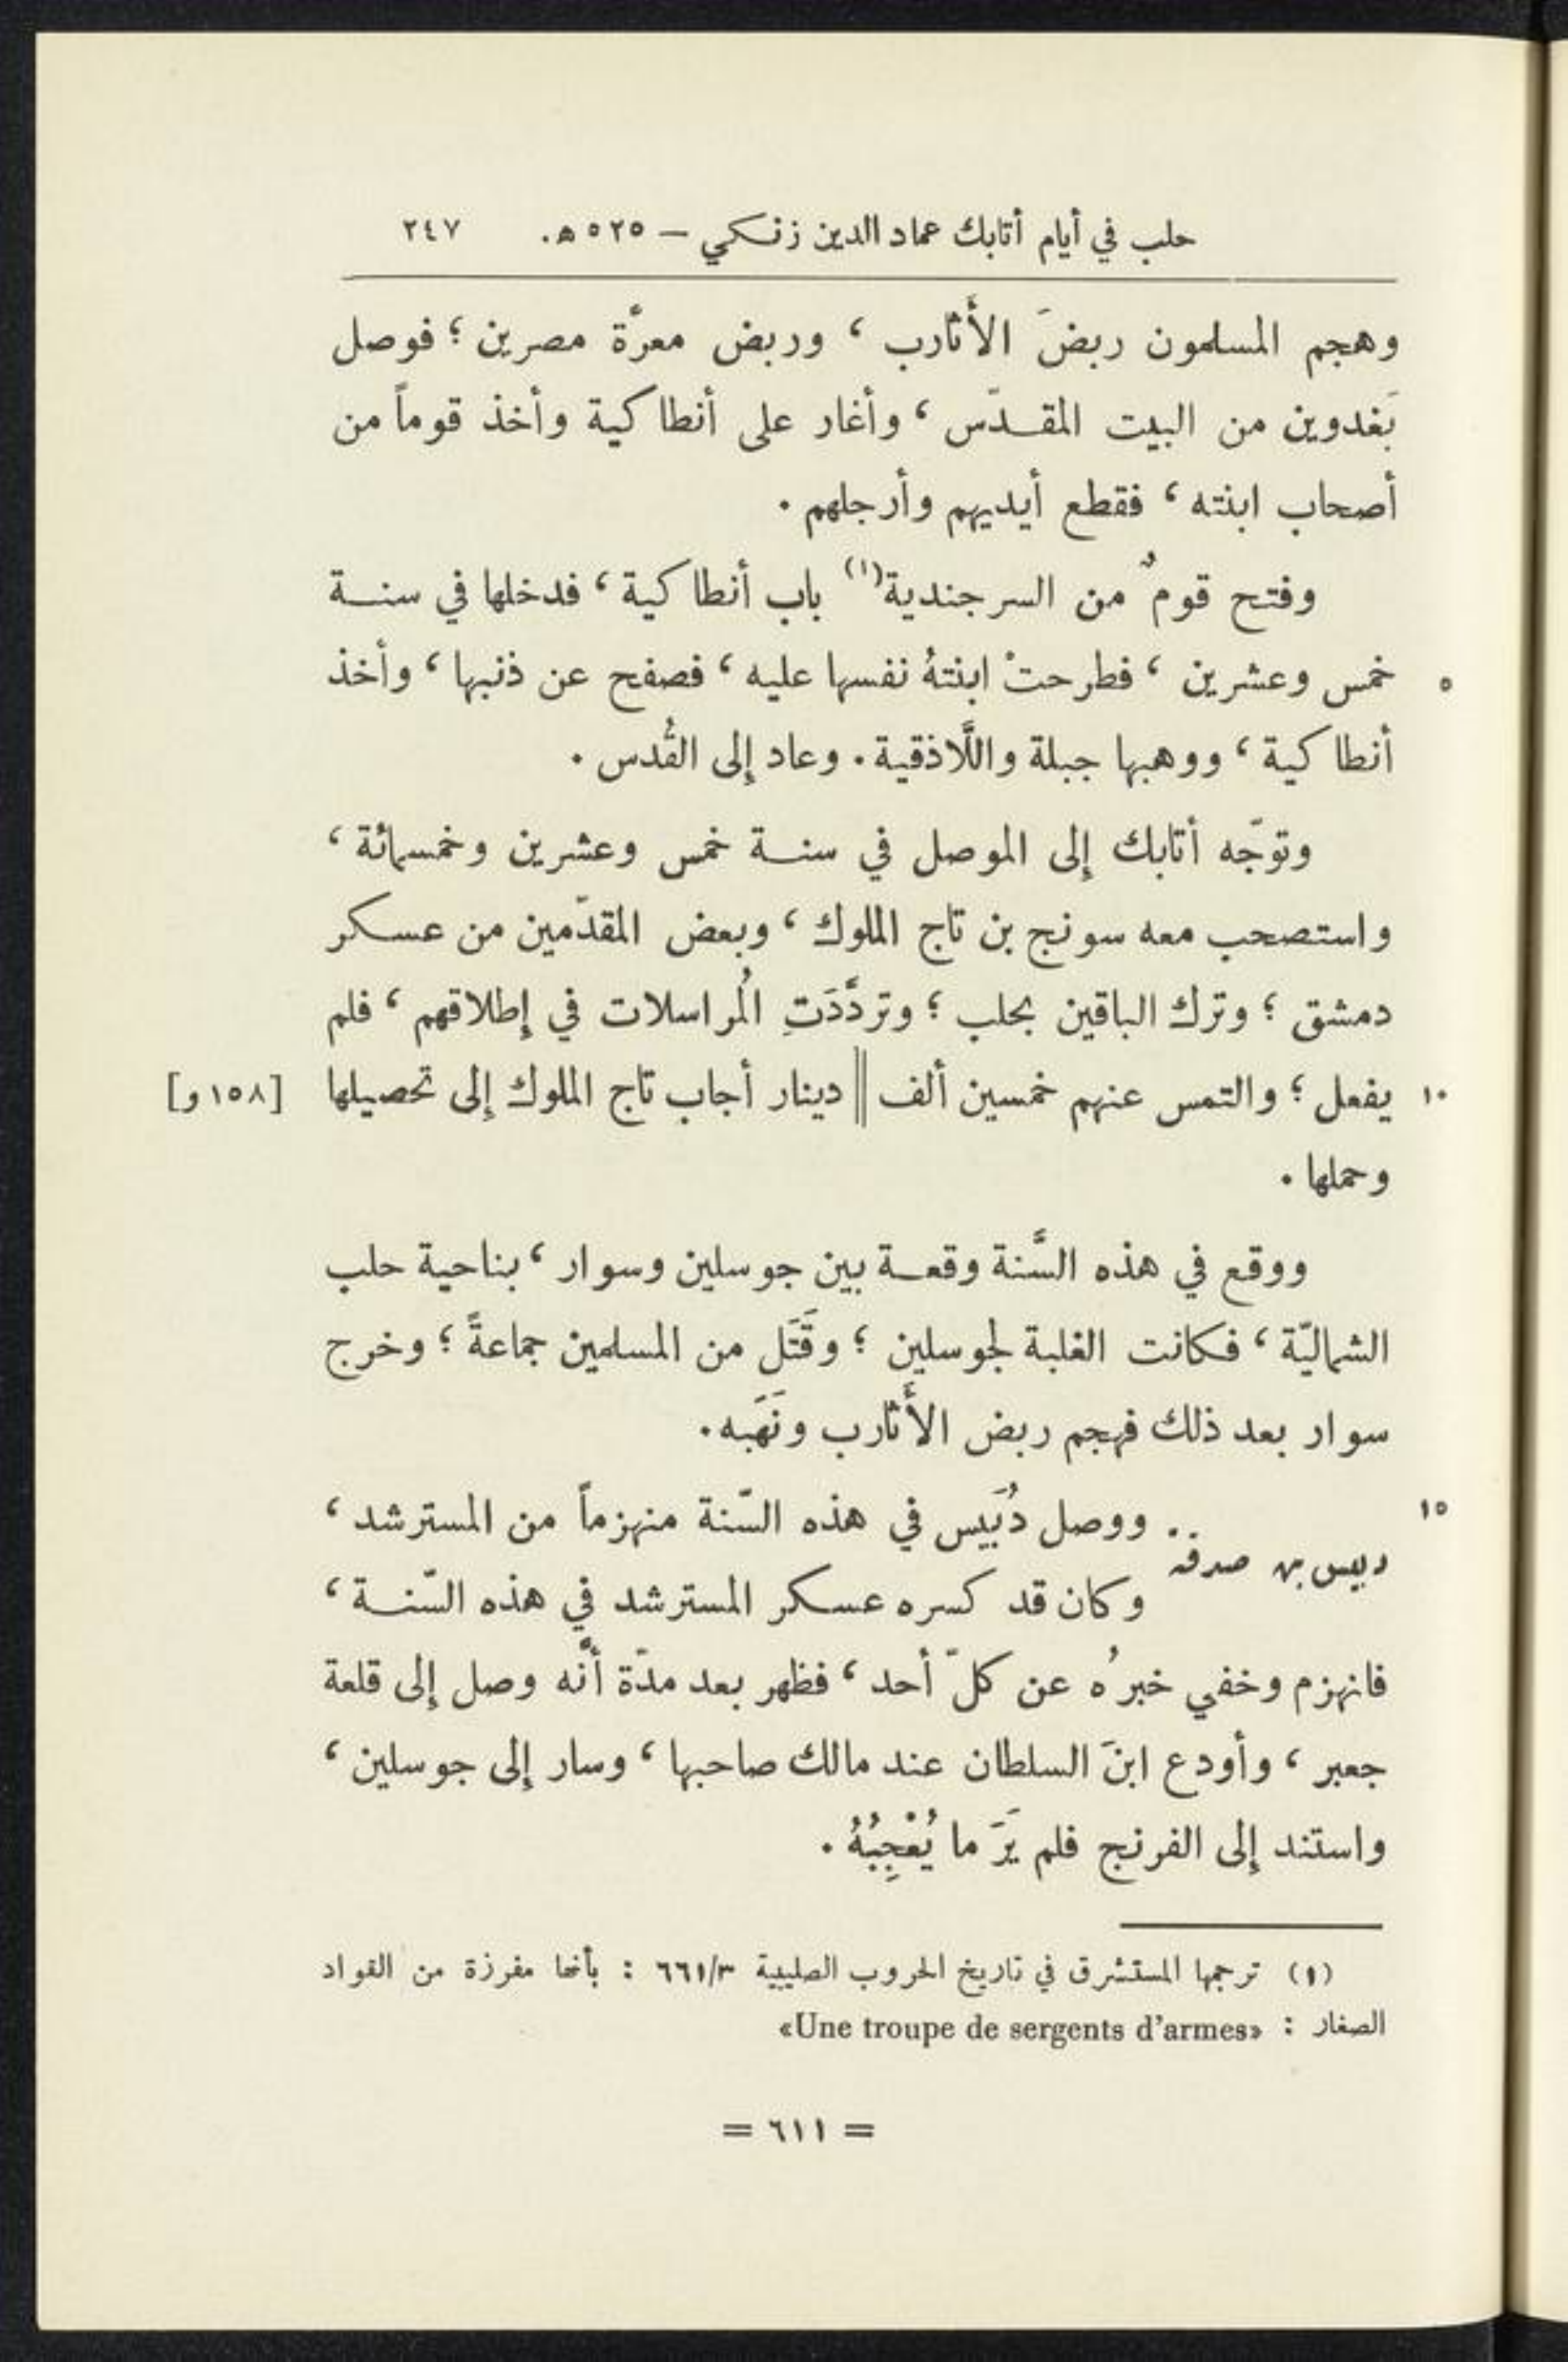 حلب في أيام أتابك عماد الدين زنكي – ٥٢٥ هـ. ٢٤٧
وهجم المسلمون ربضَ الأَثارب ، وربض معرَّة مصرين ؛ فوصل
بَغدوين من البيت المقدّس ، وأغار على أنطاكية وأخذ قوماً من
أصحاب ابنته ، فقطع أيديهم وأرجلهم .
وفتح قومٌ من السرجندية(١) باب أنطاكية ، فدخلها في سنة
خمس وعشرين ، فطرحتْ ابنتهُ نفسها عليه ، فصفح عن ذنبها ، وأخذ ٥
أنطاكية ، ووهبها جبلة واللَّاذقية . وعاد إلى القُدس .
وتوجّه أتابك إلى الموصل في سنة خمس وعشرين وخمسمائة ،
واستصحب معه سونج بن تاج الملوك ، وبعض المقدّمين من عسكر
دمشق ؛ وترك الباقين بحلب ؛ وتردَّدَتِ المُراسلات في إطلاقهم ، فلم
يفعل ؛ والتمس عنهم خمسين ألف || دينار أجاب تاج الملوك إلى تحصيلها [١٥٨ و] ١٠
وحملها .
ووقع في هذه السَّنة وقعة بين جوسلين وسوار ، بناحية حلب
الشماليّة ، فكانت الغلبة لجوسلين ؛ وقَتَل من المسلمين جماعةً ؛ وخرج
سوار بعد ذلك فهجم ربض الأَثارب ونَهَبه .
ووصل دُبَيس في هذه السّنة منهزماً من المسترشد ، ١٥
دبيس بن صدقة
وكان قد كسره عسكر المسترشد في هذه السّنة ،
فانهزم وخفي خبرُه عن كلّ أحد ، فظهر بعد مدّة أنَّه وصل إلى قلعة
جعبر ، وأودع ابنَ السلطان عند مالك صاحبها ، وسار إلى جوسلين ،
واستند إلى الفرنج فلم يَرَ ما يُعْجِبُهُ .
(١) ترجمها المستشرق في تاريخ الحروب الصليبية ٦٦١/٣ : بأنها مفرزة من القواد
الصغار : «Une troupe de sergents d'armes»
= ٦١١ =